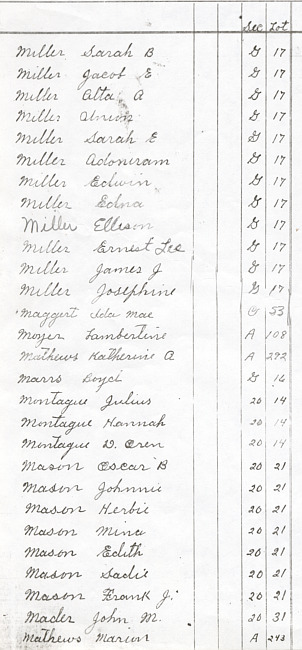 Sec Lot
Miller Sarah B G 17
Miller Jacob E G 17
Miller Alta A G 17
Miller G 17
Miller Sarah E G 17
Miller Adoniram G 17
Miller Edwin G 17
Miller Edna G 17
Miller Ellison G 17
Miller Ernest Lee G 17
Miller James J G 17
Miller Josephine G 17
Maggert Ida Mae G 53
Moyer Lambertine A 108
Mathews Katherine A A 292
Marrs Boyd G 16
Montague Julius 20 14
Montague Hannah 20 14
Montague D. Oren 20 14
Mason Oscar B 20 21
Mason Johnnie 20 21
Mason Herbie 20 21
Mason Mina 20 21
Mason Edith 20 21
Mason Sadie 20 21
Mason Frank J. 20 21
Mader John M. 20 31
Mathews Marion A 293